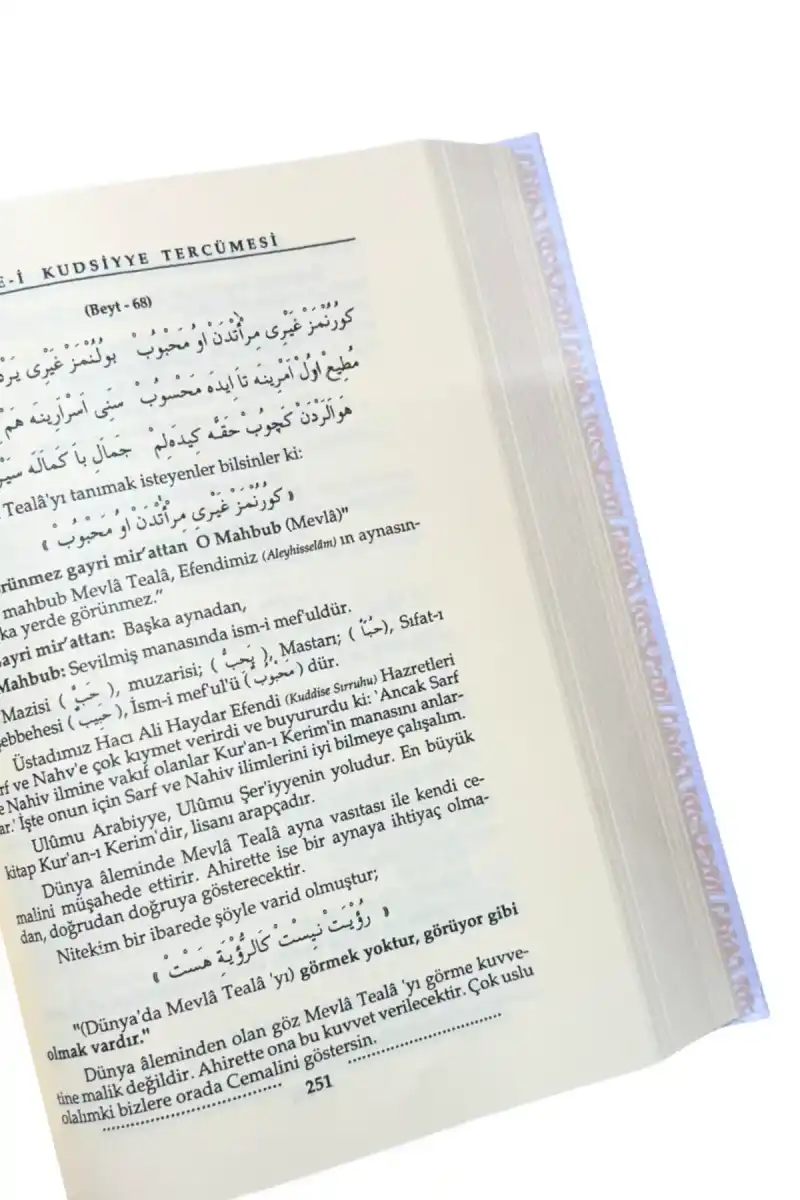 E-İ KUDSİYYE TERCÜMESİ
(Beyt - 68)
كورُنْمَزْ غَيْرِى مِرْأَتْدَنْ اُو مَحْبُوبْ بولُنْمَزْ غَيْرِى
مُطِيعْ اولْ اَمْرِينَه تَا اِيدَه مَحْسُوبْ سَنِى اَسْرَارِينَه هَمْ
هَوالَرْدَنْ كَچُوبْ حَقَّه كِيدَه لِمْ جَمَالِ بَا كَمَالَه
Tealâ'yı tanımak isteyenler bilsinler ki:
« كورُنْمَزْ غَيْرِى مِرْأَتْدَنْ اُو مَحْبُوبْ »
rünmez gayri mir'attan O Mahbub (Mevlâ)"
mahbub Mevlâ Tealâ, Efendimiz (Aleyhisselâm) ın aynasın-
ka yerde görünmez."
ayri mir'attan: Başka aynadan,
Mahbub: Sevilmiş manasında ism-i mef'uldür.
Mazisi ( حَبَّ ), muzarisi; ( يَحِبُّ ), Mastarı; ( حُبًّا ), Sıfat-ı
ebbehesi ( حَبِيبٌ ), İsm-i mef'ul'ü ( مَحْبُوبٌ ) dür.
Üstadımız Hacı Ali Haydar Efendi (Kuddise Sırruhu) Hazretleri
rf ve Nahv'e çok kıymet verirdi ve buyururdu ki: 'Ancak Sarf
e Nahiv ilmine vakıf olanlar Kur'an-ı Kerim'in manasını anlar-
ar.' İşte onun için Sarf ve Nahiv ilimlerini iyi bilmeye çalışalım.
Ulûmu Arabiyye, Ulûmu Şer'iyyenin yoludur. En büyük
kitap Kur'an-ı Kerim'dir, lisanı arapçadır.
Dünya âleminde Mevlâ Tealâ ayna vasıtası ile kendi ce-
malini müşahede ettirir. Ahirette ise bir aynaya ihtiyaç olma-
dan, doğrudan doğruya gösterecektir.
Nitekim bir ibarede şöyle varid olmuştur;
« رؤْيَتْ نِيسْتْ كَالرُّؤْيَة هَسْتْ »
"(Dünya'da Mevlâ Tealâ 'yı) görmek yoktur, görüyor gibi
olmak vardır."
Dünya âleminden olan göz Mevlâ Tealâ 'yı görme kuvve-
tine malik değildir. Ahirette ona bu kuvvet verilecektir. Çok uslu
olalımki bizlere orada Cemalini göstersin.
251